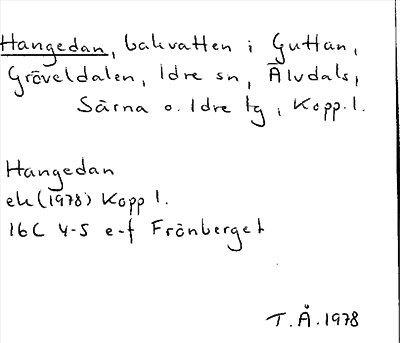 Hangedan, bakvatten i Guttån,
Gröveldalen, Idre sn, Älvdals,
Särna o. Idre tg, Kopp. l.
Hangedan
ek (1978) Kopp l.
16C 4-5 e-f Frönberget
T. Å. 1978